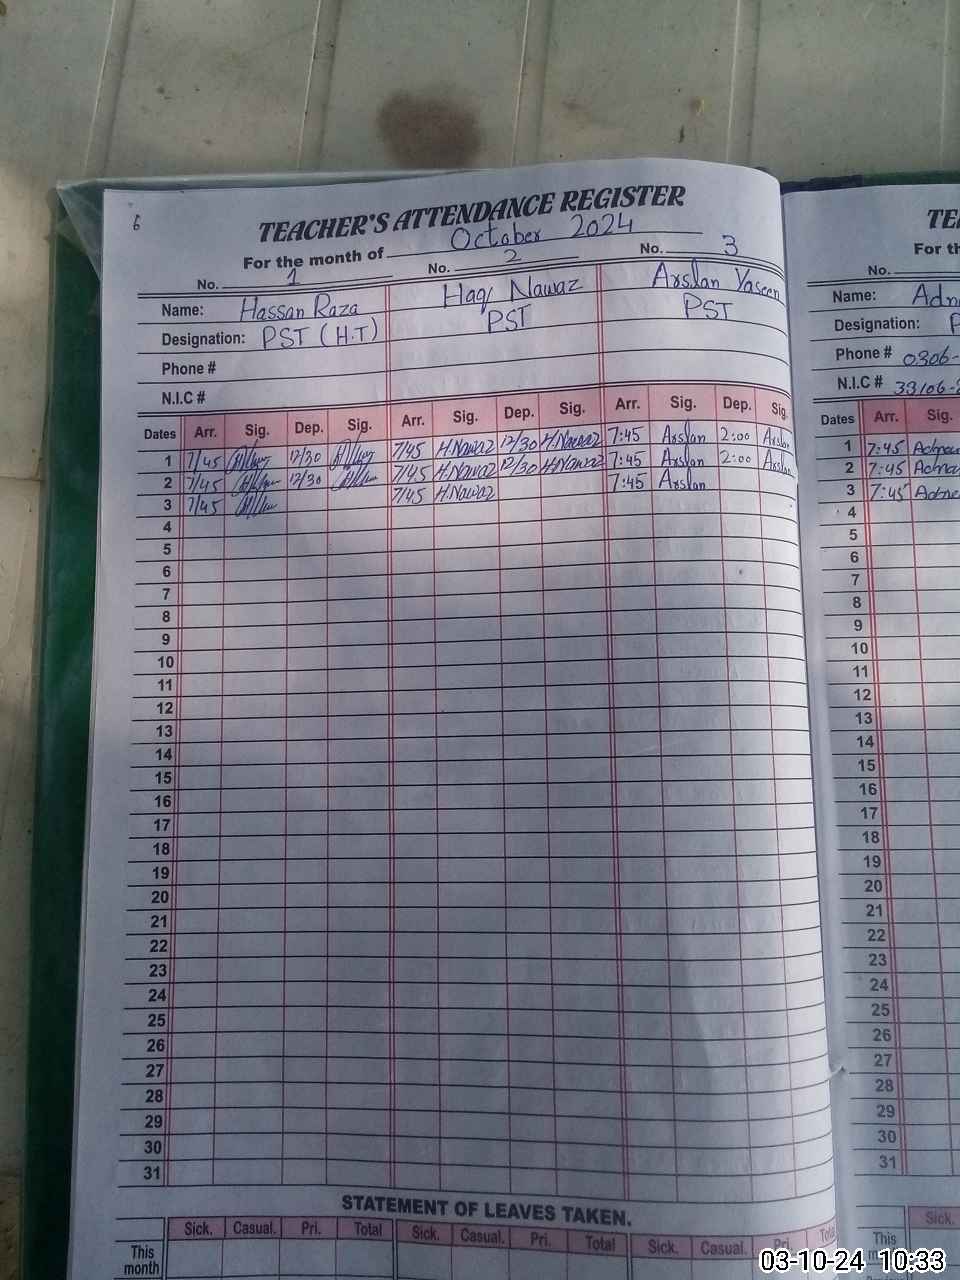 6
TEACHER'S ATTENDANCE REGISTER
For the month of October 2024
No. 1 No. 2 No. 3
Name: Hassan Raza Haq Nawaz Arslan Yaseen
Designation: PST (H.T) PST PST
Phone #
N.I.C #
Dates Arr. Sig. Dep. Sig. Arr. Sig. Dep. Sig. Arr. Sig. Dep. Sig.
1 7/45 12/30 7/45 H.Nawaz 12/30 H.Nawaz 7:45 Arslan 2:00 Arslan
2 7/45 12/30 7/45 H.Nawaz 12/30 H.Nawaz 7:45 Arslan 2:00 Arslan
3 7/45 7/45 H.Nawaz 7:45 Arslan
4
5
6
7
8
9
10
11
12
13
14
15
16
17
18
19
20
21
22
23
24
25
26
27
28
29
30
31
STATEMENT OF LEAVES TAKEN.
Sick. Casual. Pri. Total Sick. Casual. Pri. Total Sick. Casual. Pri. Total
This month
TE
For th
No.
Name: Adn
Designation: P
Phone # 0306-
N.I.C # 33106-
Dates Arr. Sig.
1 7:45 Adna
2 7:45 Adna
3 7:45 Adna
4
5
6
7
8
9
10
11
12
13
14
15
16
17
18
19
20
21
22
23
24
25
26
27
28
29
30
31
Sick.
This
03-10-24 10:33